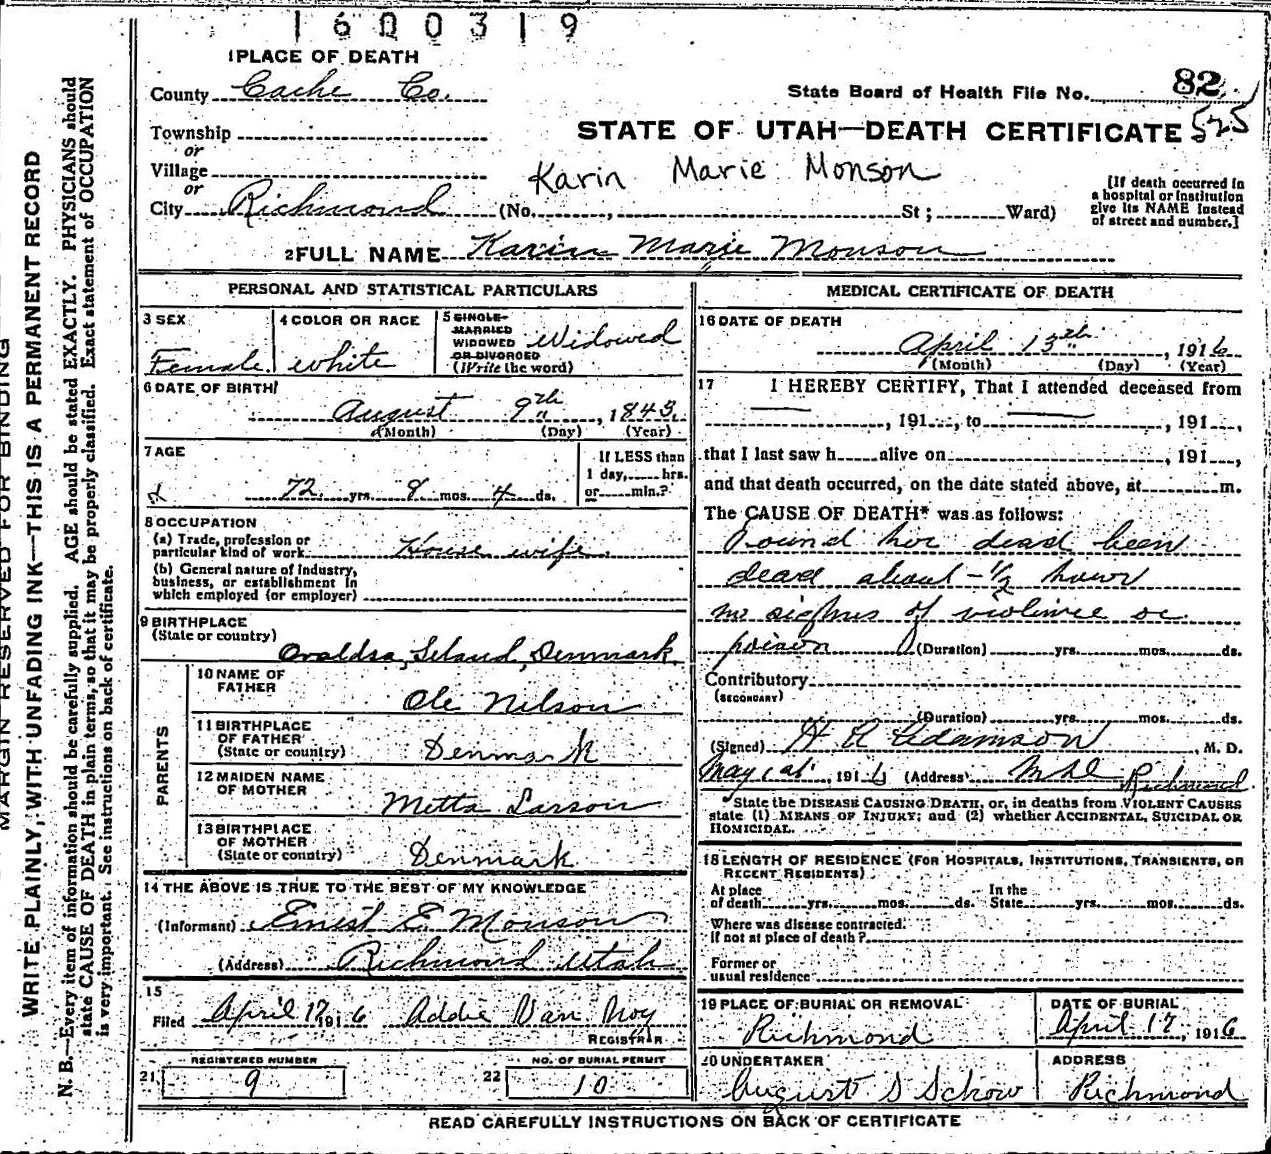 1600319
1 PLACE OF DEATH
County Cache Co.
State Board of Health File No. 82
Township
or
STATE OF UTAH—DEATH CERTIFICATE 525
Village
or
Karin Marie Monson
City Richmond (No. , St; Ward)
[If death occurred in
a hospital or institution
give its NAME instead
of street and number.]
2 FULL NAME Karin Marie Monson
PERSONAL AND STATISTICAL PARTICULARS
3 SEX
Female
4 COLOR OR RACE
white
5 SINGLE
MARRIED
WIDOWED
OR DIVORCED
(Write the word)
Widowed
6 DATE OF BIRTH
August 9th, 1843
(Month) (Day) (Year)
7 AGE
72 yrs. 8 mos. 4 ds.
If LESS than
1 day, hrs.
or min.?
8 OCCUPATION
(a) Trade, profession or
particular kind of work House wife
(b) General nature of industry,
business, or establishment in
which employed (or employer)
9 BIRTHPLACE
(State or country)
Denmark
PARENTS
10 NAME OF
FATHER
Ole Nilson
11 BIRTHPLACE
OF FATHER
(State or country)
Denmark
12 MAIDEN NAME
OF MOTHER
Metta Larson
13 BIRTHPLACE
OF MOTHER
(State or country)
Denmark
14 THE ABOVE IS TRUE TO THE BEST OF MY KNOWLEDGE
(Informant) Ernest E. Monson
(Address) Richmond Utah
15
Filed April 17 1916 Addie Van Noy
REGISTRAR
REGISTERED NUMBER
21 9
NO. OF BURIAL PERMIT
22 10
MEDICAL CERTIFICATE OF DEATH
16 DATE OF DEATH
April 13th, 1916
(Month) (Day) (Year)
17 I HEREBY CERTIFY, That I attended deceased from
, 191 , to , 191 ,
that I last saw h alive on , 191 ,
and that death occurred, on the date stated above, at m.
The CAUSE OF DEATH* was as follows:
Found her dead been
dead about - 1/2 hour
no sighns of violince or
poison (Duration) yrs. mos. ds.
Contributory
(SECONDARY)
(Duration) yrs. mos. ds.
(Signed) H A Adamson, M. D.
May 1st, 1916 (Address) Richmond
*State the DISEASE CAUSING DEATH, or, in deaths from VIOLENT CAUSES
state (1) MEANS OF INJURY; and (2) whether ACCIDENTAL, SUICIDAL OR
HOMICIDAL.
18 LENGTH OF RESIDENCE (FOR HOSPITALS, INSTITUTIONS, TRANSIENTS, OR
RECENT RESIDENTS)
At place
of death yrs. mos. ds.
In the
State yrs. mos. ds.
Where was disease contracted.
If not at place of death?
Former or
usual residence
19 PLACE OF BURIAL OR REMOVAL
Richmond
DATE OF BURIAL
April 17, 1916
20 UNDERTAKER
August S Schow
ADDRESS
Richmond
READ CAREFULLY INSTRUCTIONS ON BACK OF CERTIFICATE
MARGIN RESERVED FOR BINDING
WRITE PLAINLY, WITH UNFADING INK—THIS IS A PERMANENT RECORD
N. B.—Every item of information should be carefully supplied. AGE should be stated EXACTLY. PHYSICIANS should
state CAUSE OF DEATH in plain terms, so that it may be properly classified. Exact statement of OCCUPATION
is very important. See instructions on back of certificate.